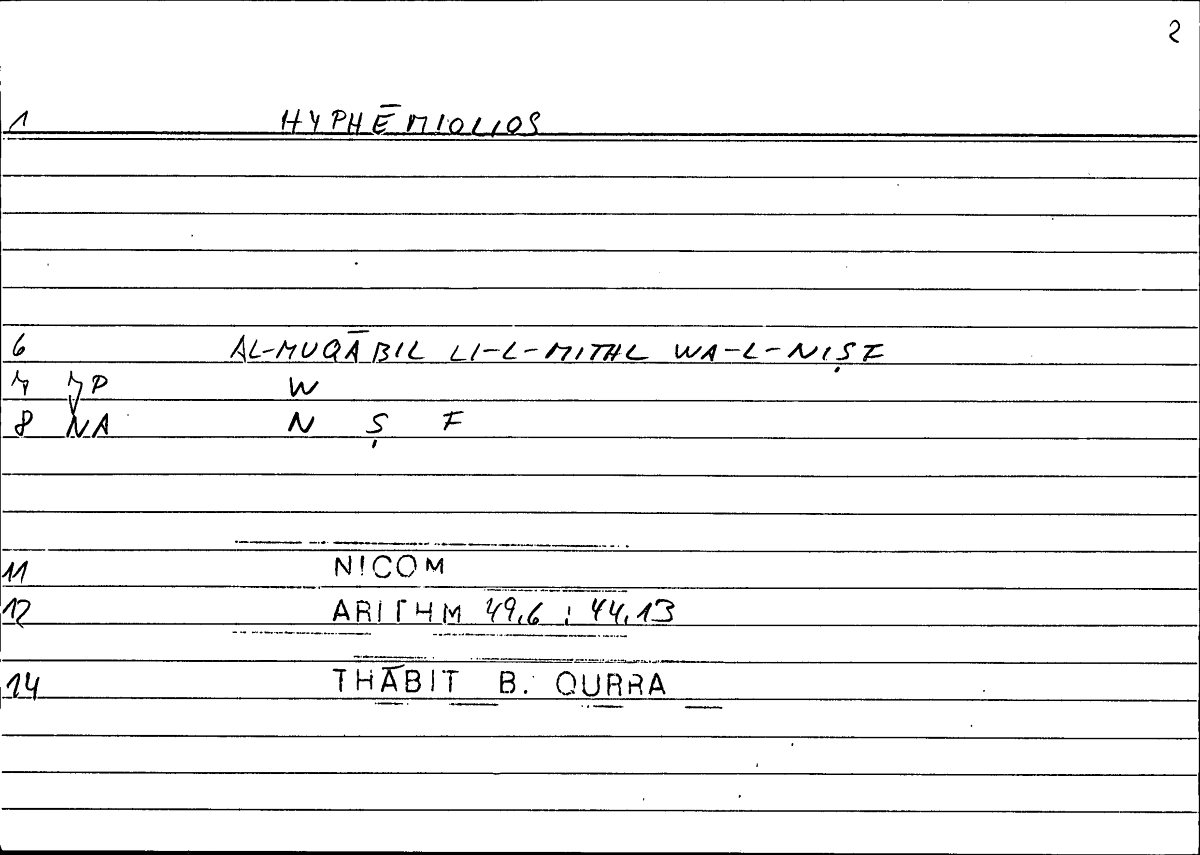 2
1 HYPHĒMIOLIOS
6 AL-MUQĀBIL LI-L-MITHL WA-L-NIṢF
7 P W
8 NA N Ṣ F
11 NICOM
12 ARITHM 49,6 ; 44,13
14 THĀBIT B. QURRA